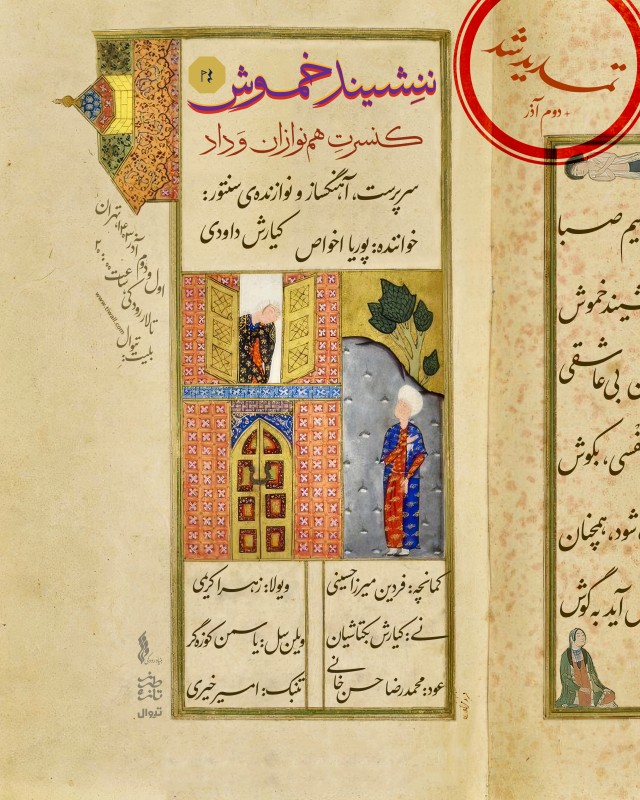 تمدید شد
+ دوم آذر
ننشیند خموش
کنسرتِ هم‌نوازان وَداد
سرپرست، آهنگساز و نوازنده‌ی سنتور:
کیارش داودی
خواننده: پوریا اخواص
اول و دوم آذر ۱۴۰۳، تهران
تالار رودکی ساعت ۲۰:۰۰
بلیت: تیوال
www.tiwall.com
کمانچه: فردین میرزاحسینی
نے: کیارش بکتاشیان
عود: محمدرضا حسن‌خانے
ویولا: زهرا کریمی
ویلن‌سل: یاسمن کوزه‌گر
تنبک: امیر خیری
تیوال
یم صبا
شیند خموش
بی عاشقی
نفسی، بکوش
شود، همچنان
آید به گوش